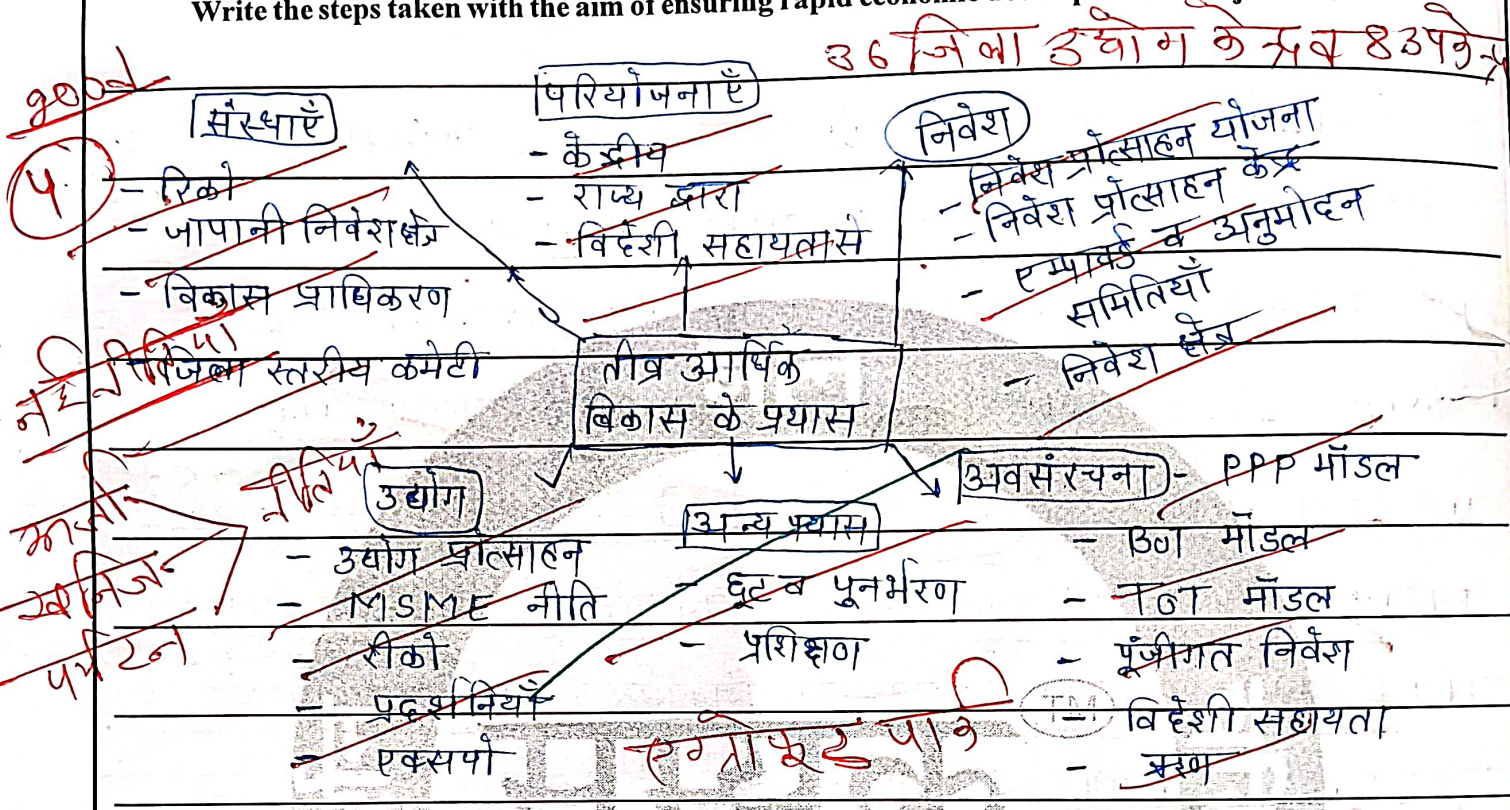 Write the steps taken with the aim of ensuring rapid
36 जिला उद्योग केन्द्र व 8 उपकेन्द्र
good
संस्थाएँ
- रिको
- जापानी निवेश क्षेत्र
- विकास प्राधिकरण
जिला स्तरीय कमेटी
परियोजनाएँ
- केन्द्रीय
- राज्य द्वारा
- विदेशी सहायता से
निवेश
- निवेश प्रोत्साहन योजना
- निवेश प्रोत्साहन केन्द्र
- एम्पावर्ड व अनुमोदन
समितियाँ
- निवेश क्षेत्र
तीव्र आर्थिक
विकास के प्रयास
नई नीतियां
खनिज
पर्यटन
नीतियाँ
उद्योग
- उद्योग प्रोत्साहन
- MSME नीति
- रीको
- प्रदर्शनियाँ
- एक्सपो
अन्य प्रयास
- छूट व पुनर्भरण
- प्रशिक्षण
एग्रोफूड पार्क
अवसंरचना - PPP मॉडल
- BOT मॉडल
- TOT मॉडल
- पूंजीगत निवेश
- विदेशी सहायता
- ऋण
TM